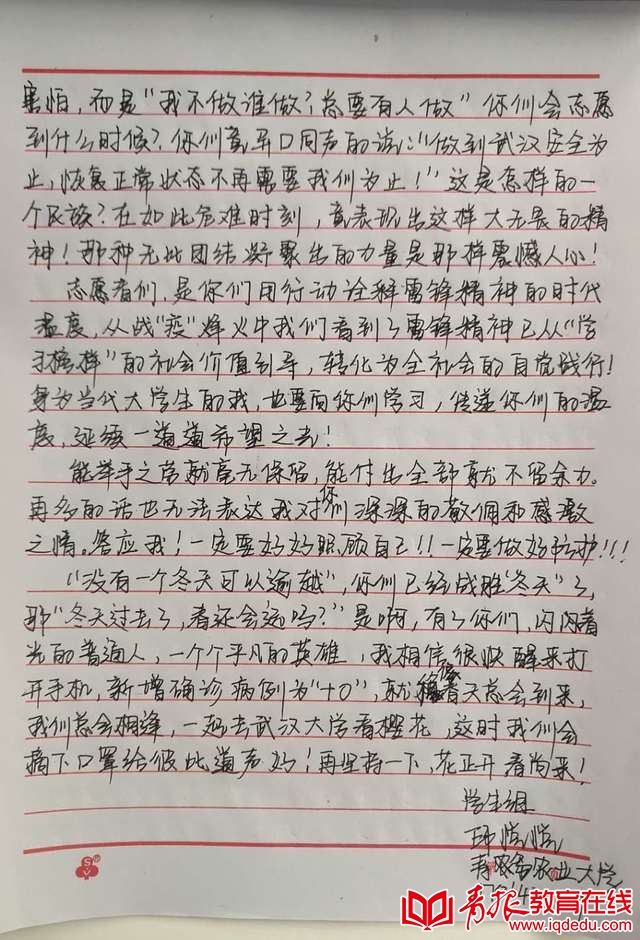 害怕，而是“我不做谁做？总要有人做”你们会志愿
到什么时候？你们竟异口同声的说：“做到武汉安全为
止，恢复正常状态不再需要我们为止！”这是怎样的一
个民族？在如此危难时刻，竟表现出这样大无畏的精
神！那种无比团结凝聚出的力量是那样震撼人心！
志愿者们，是你们用行动诠释雷锋精神的时代
温度，从战“疫”烽火中我们看到了雷锋精神已从“学
习榜样”的社会价值引导，转化为全社会的自觉践行！
身为当代大学生的我，也要向你们学习，传递你们的温
度，延续一道道希望之光！
能举手之劳就毫无保留，能付出全部就不留余力。
再多的话也无法表达我对你们深深的敬佩和感激
之情。答应我！一定要好好照顾自己！！一定要做好防护！！！
“没有一个冬天可以逾越”，你们已经战胜“冬天”了，
那“冬天过去了，春还会远吗？”是啊，有了你们，闪闪着
光的普通人，一个个平凡的英雄，我相信很快醒来打
开手机，新增确诊病例为“+0”，就像春天总会到来，
我们总会相逢，一起去武汉大学看樱花，这时我们会
摘下口罩给彼此道声好！再坚持一下，花正开春尚来！
学生组
青岛农业大学
青报教育在线
www.iqdedu.com